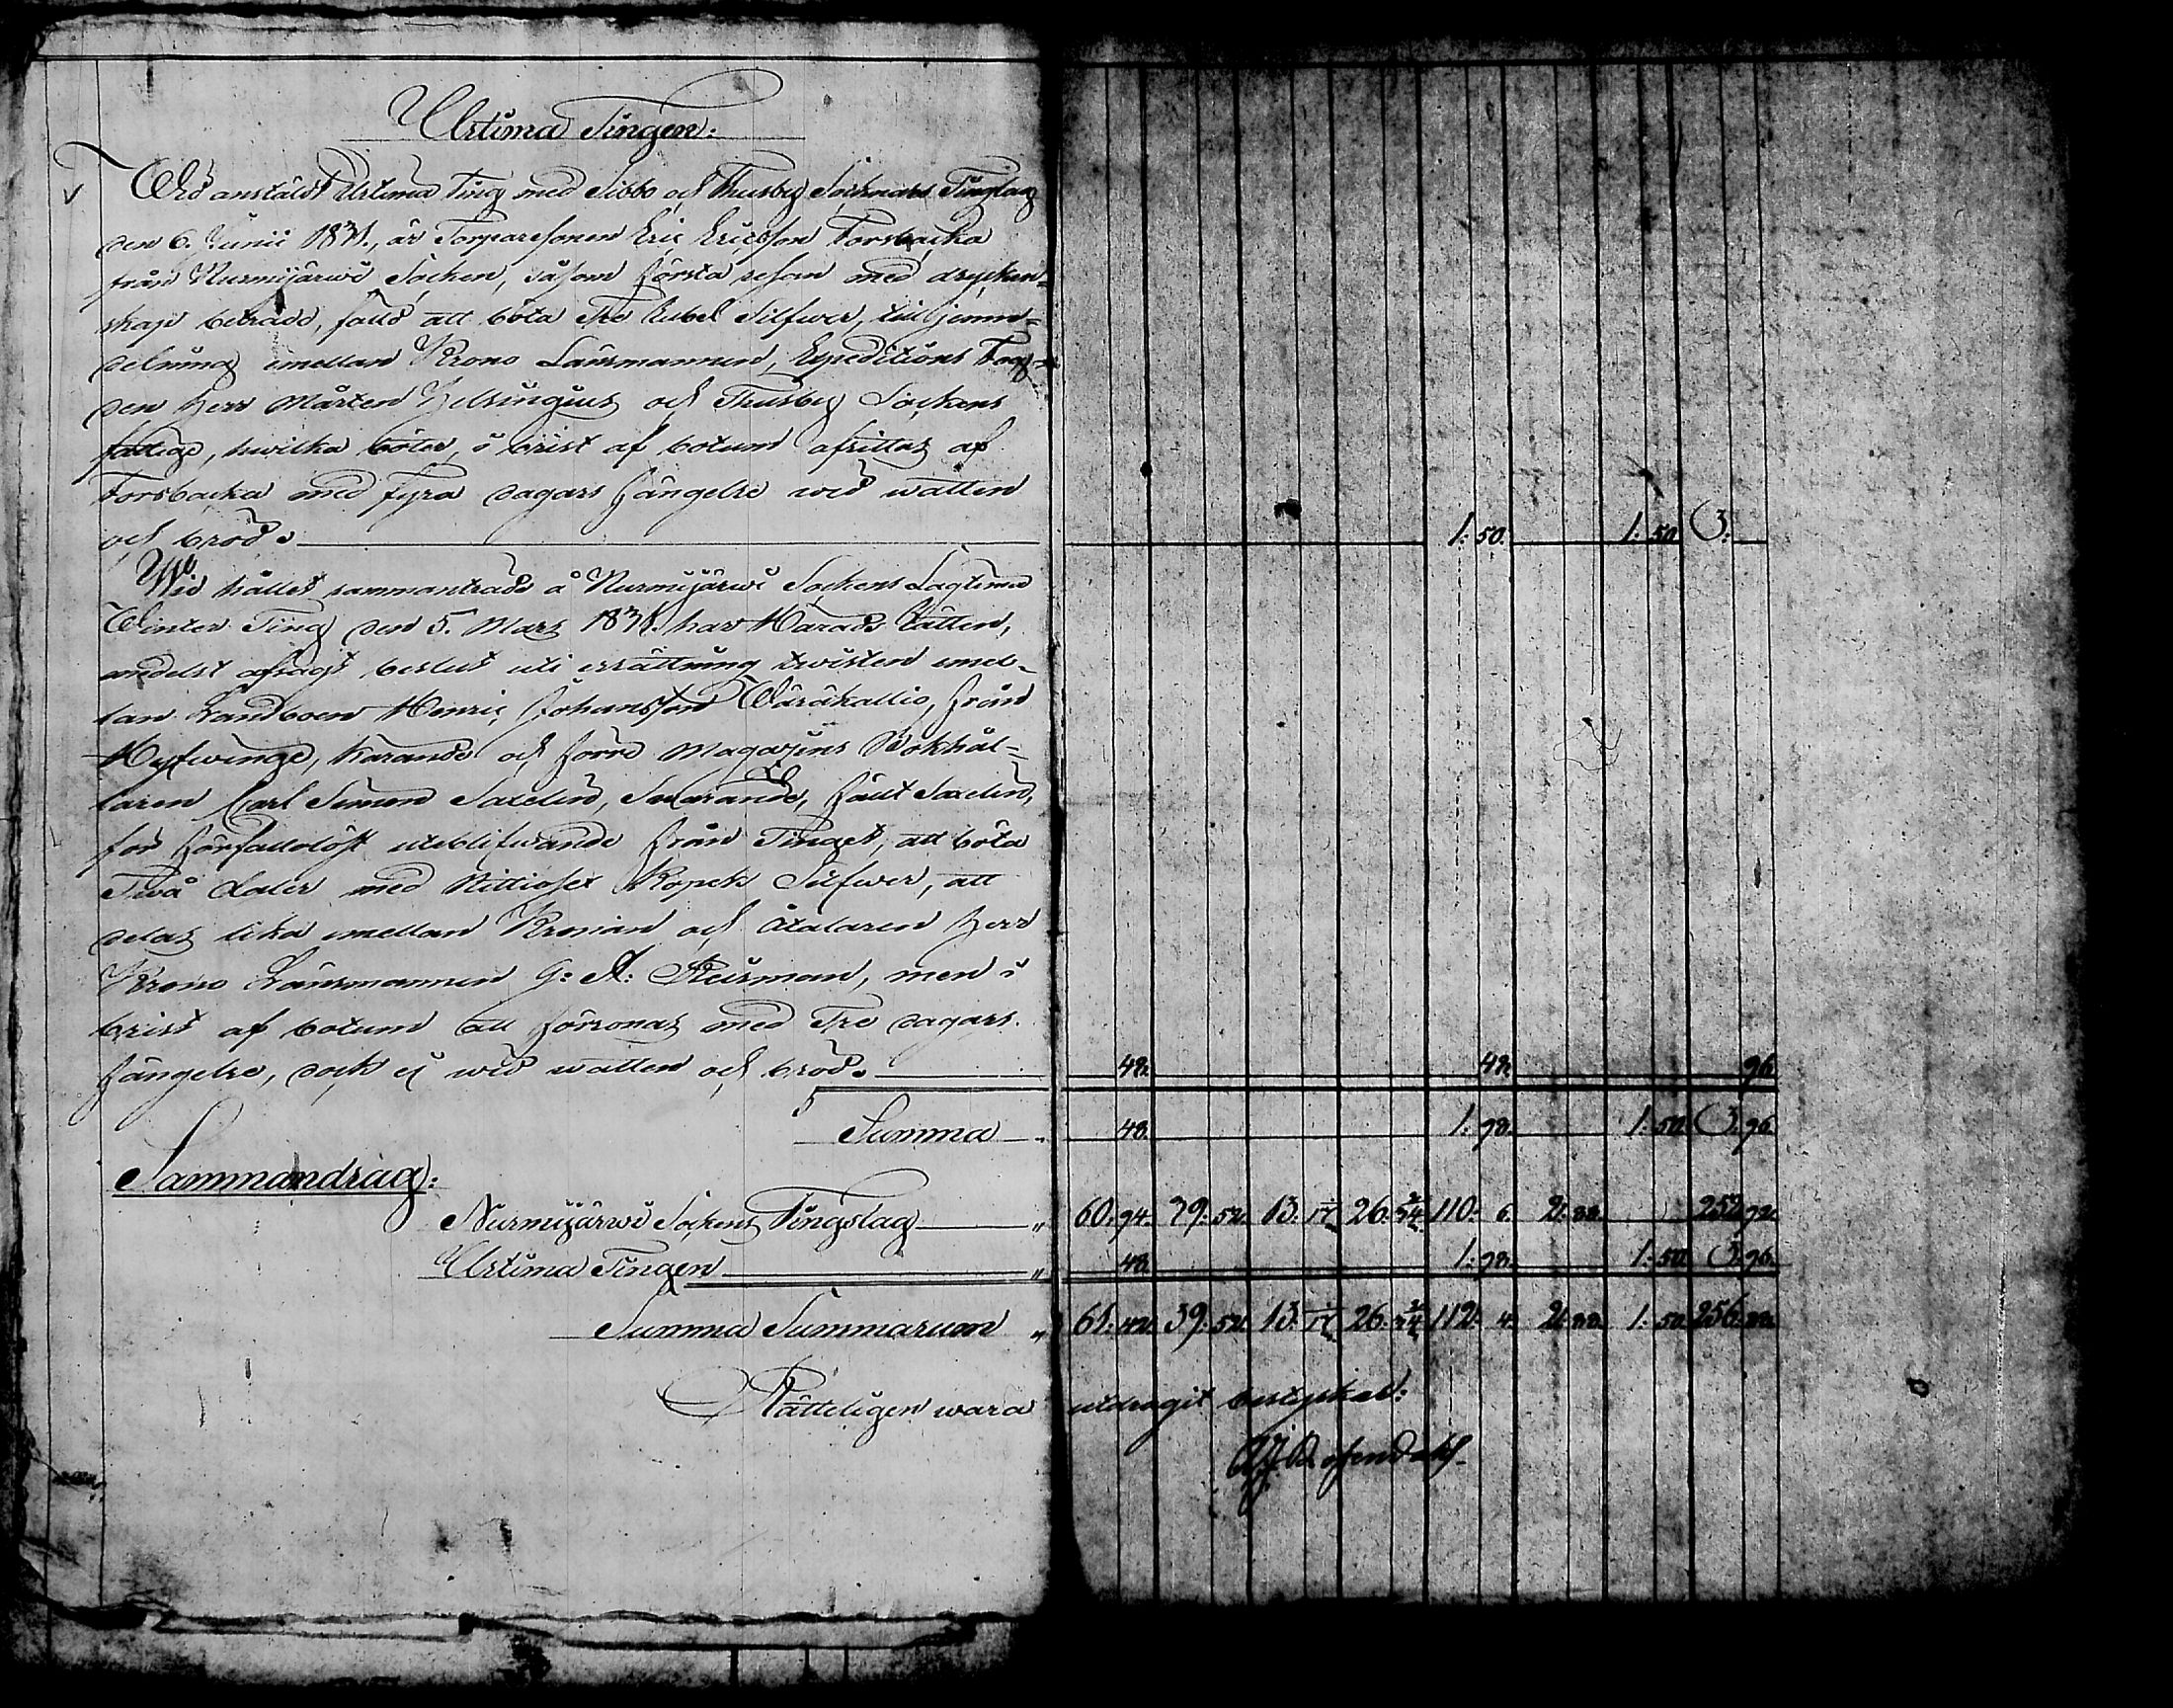 Urtima Tingen.
Wid anstäldt Urtima Ting med Sibbo och Thusby Socknars Tingslag
den 6. Junii 1831., är Torparesonen Eric Ericsson Forsbacka
från Nurmijärwi Socken, såsom första resan med dryckenskap
beträdd, fälld att böta Tre Rubel Silfwer, till jemn=
delning emellan Krono Länsmannen, Expeditions Fogden
Herr Mårten Helsingius och Thusby Sockens
fattige, hwilka böter, i brist af botum afsittas af
Forsbacka med fyra dagars fängelse wid watten
och bröd. 1: 50. 1: 50 3:
Wid hållet sammanträde å Nurmijärwi Sockens Lagtima
Winter Ting den 5. Mars 1831. har Härads Rätten,
medelst afsagt beslut uti ersättning twisten emel=
lan Landboen Henric Johansson Wäräkallio, från
Hyfwinge, Kärande och förre Magazins Bokhål=
laren Carl Simon Saxelin, Swarande, fällt Saxelin,
för förfallolöst uteblifwande från Tinget, att böta
Två daler med Nittiosex Kopek Silfwer, att
delas lika emellan Kronan och Åtalaren Herr
Krono Länsmannen G: A: Reisman, men i
brist af botum att försonas med Tre dagars
fängelse, dock ej wid watten och bröd. 48. 48. 96
Summa 48. 1: 98. 1: 50. 3. 96.
Sammandrag:
Nurmijärwi Sockens Tingslag " 60: 94. 39: 52. 13: 26: 110: 6. 2: 88. 252. 92.
Urtima Tingen " 48. 1: 98. 1: 50 3: 96.
Summa Summarum " 61: 42. 39: 52. 13: 26: 112: 4. 2: 88. 1: 50 256: 88.
Rätteligen wara utdragit bestyrkes: